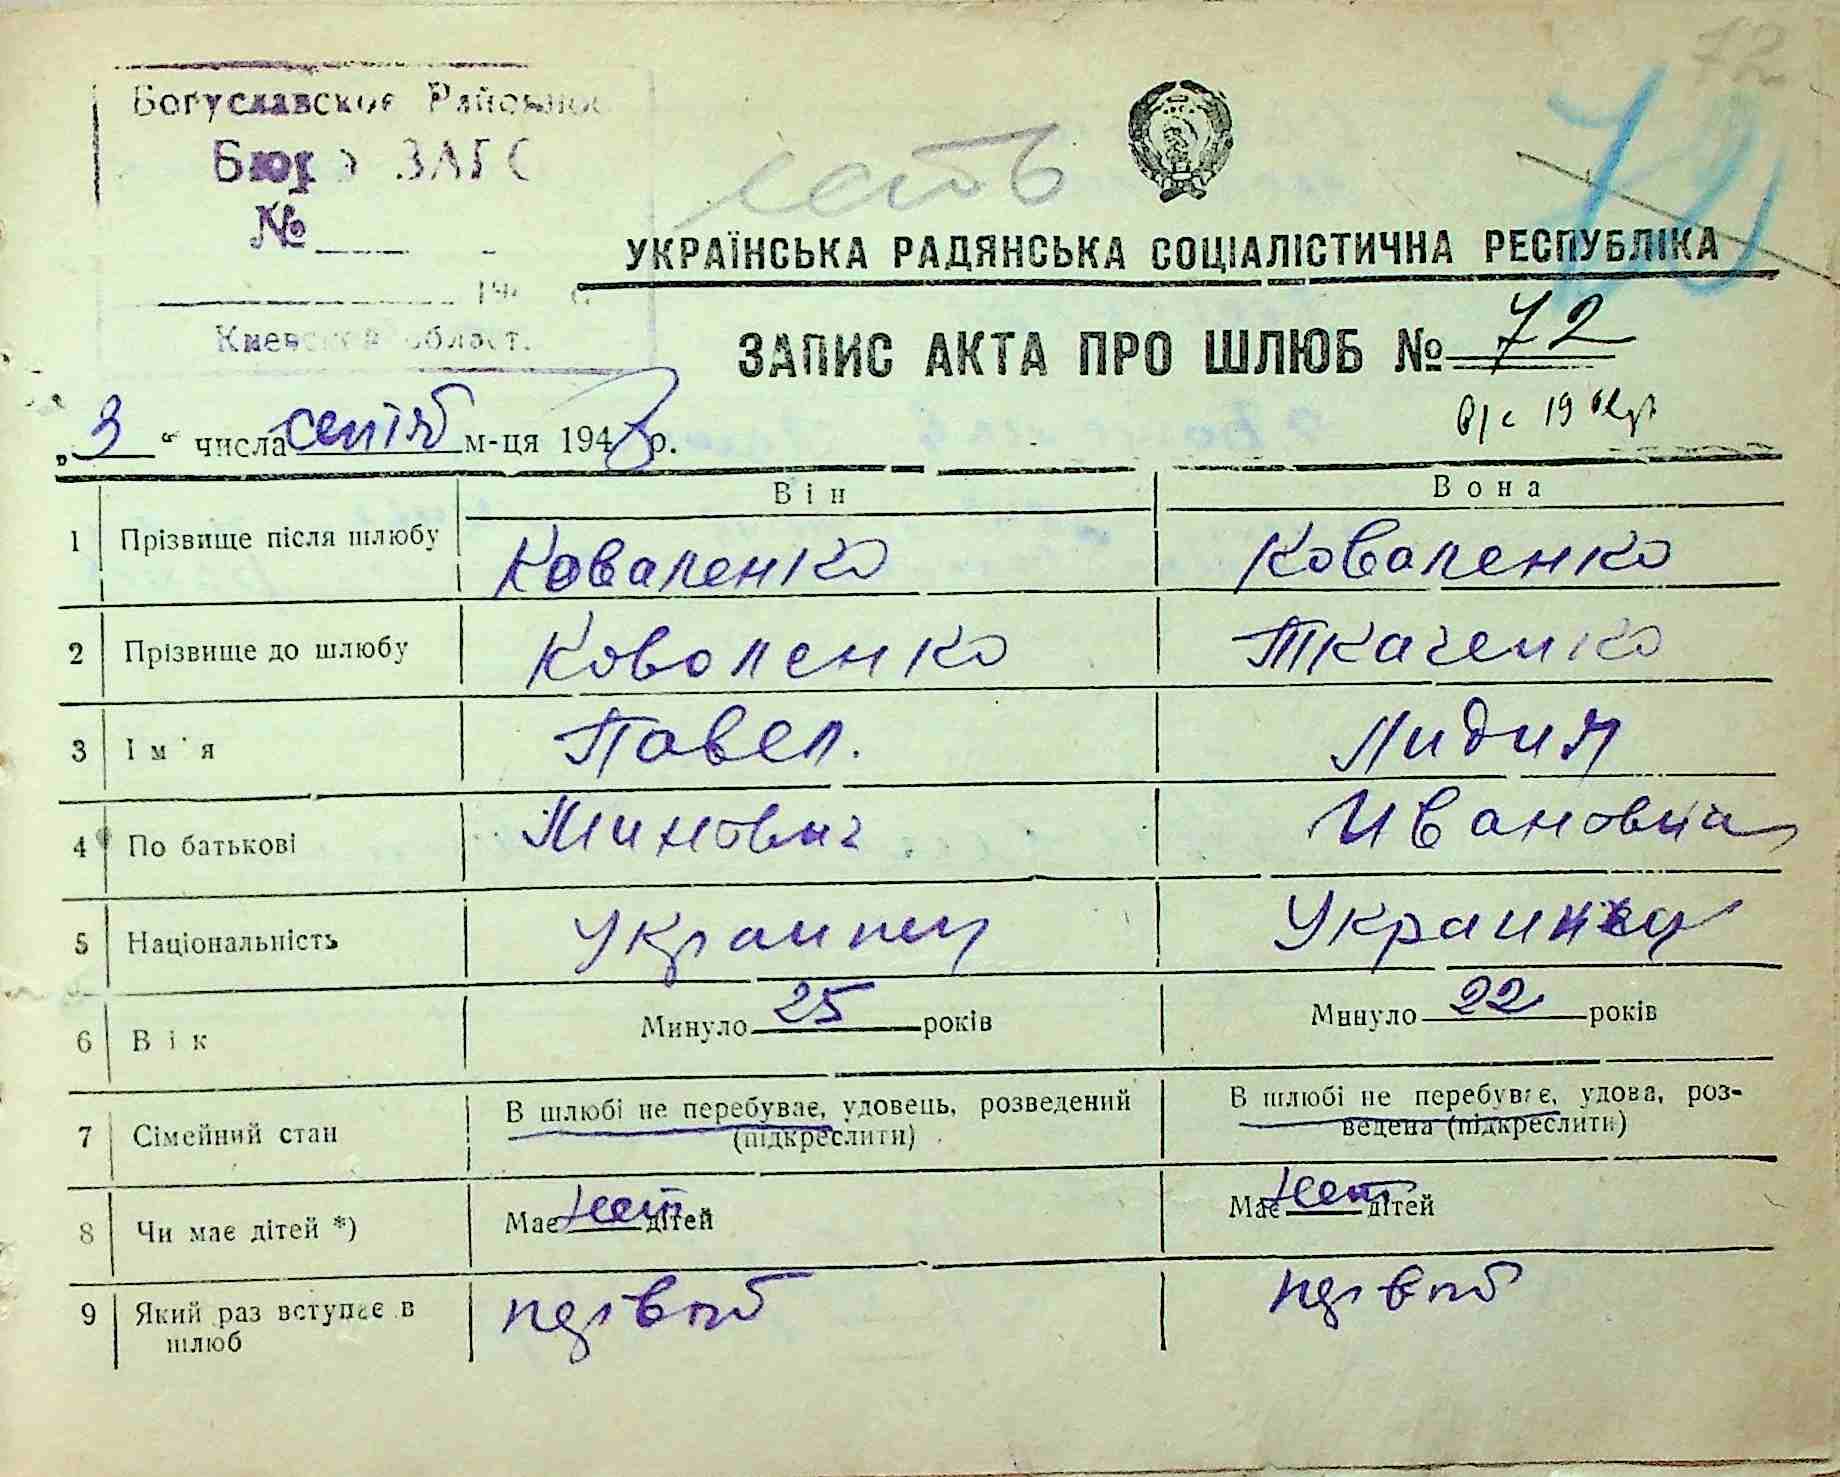 72
Богуславское Районное
Бюро ЗАГС
№
194 г.
Киевской област.
есть
УКРАЇНСЬКА РАДЯНСЬКА СОЦІАЛІСТИЧНА РЕСПУБЛІКА
ЗАПИС АКТА ПРО ШЛЮБ № 72
„3“ числа сентяб м-ця 194 р.
Він Вона
1 Прізвище після шлюбу Коваленко Коваленко
2 Прізвище до шлюбу Коволенко Ткаченко
3 Ім'я Павел. Лидия
4 По батькові Минович Ивановна
5 Національність Украинец Украинка
6 Вік Минуло 25 років Минуло 22 років
7 Сімейний стан В шлюбі не перебуває, удовець, розведений (підкреслити) В шлюбі не перебуває, удова, розведена (підкреслити)
8 Чи має дітей *) Має нет дітей Має нет дітей
9 Який раз вступає в шлюб первой первой